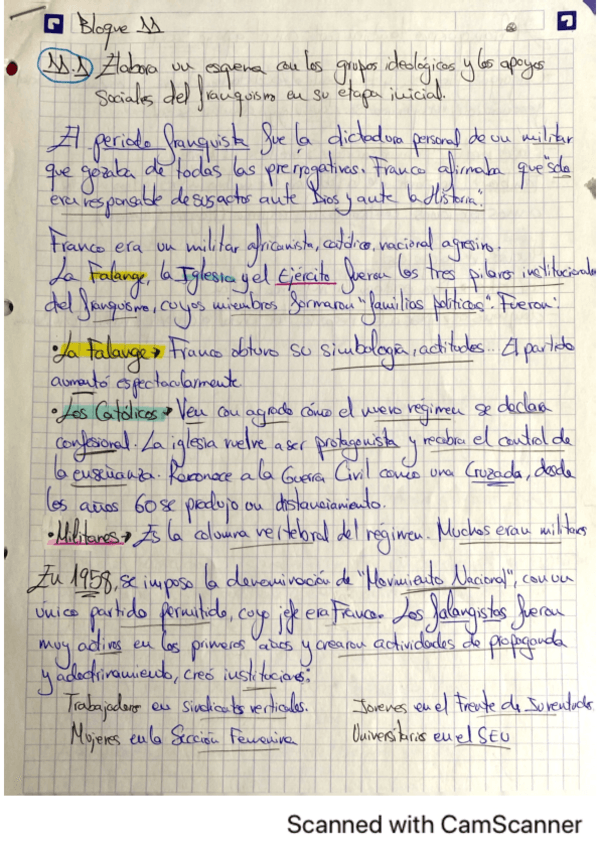 Bloque 11
11.1 Elabora un esquema con los grupos ideológicos y los apoyos
sociales del franquismo en su etapa inicial.
El periodo franquista fue la dictadura personal de un militar
que gozaba de todas las prerrogativas. Franco afirmaba que "solo
era responsable de sus actos ante Dios y ante la Historia".
Franco era un militar africanista, católico, nacional agresivo.
La Falange, la Iglesia y el Ejército fueron los tres pilares institucionales
del franquismo, cuyos miembros formaron "familias políticas". Fueron:
·La Falange→ Franco obtuvo su simbología, actitudes... El partido
aumentó espectacularmente
·Los Católicos→ Ven con agrado cómo el nuevo régimen se declara
confesional. La iglesia vuelve a ser protagonista y recobra el control de
la enseñanza. Reconoce a la Guerra Civil como una Cruzada, desde
los años 60 se produjo un distanciamiento.
·Militares→ Es la columna vertebral del régimen. Muchos eran militares
En 1958, se impuso la denominación de "Movimiento Nacional", con un
único partido permitido, cuyo jefe era Franco. Los falangistas fueron
muy activos en los primeros años y crearon actividades de propaganda
y adoctrinamiento, creó instituciones:
Trabajadores en sindicatos verticales. Jovenes en el Frente de Juventudes
Mujeres en la Sección Femenina Universitarios en el SEU
Scanned with CamScanner